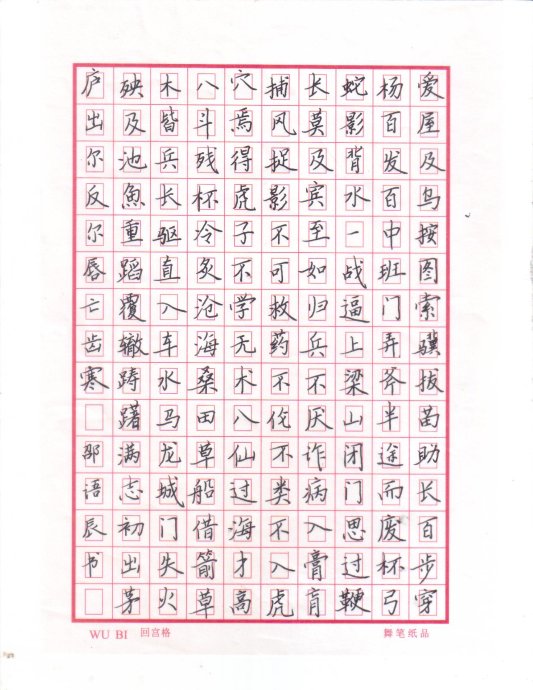 爱屋及鸟按图索骥拔苗助长百步穿
杨百发百中班门弄斧半途而废杯弓
蛇影背水一战逼上梁山闭门思过鞭
长莫及宾至如归兵不厌诈病入膏肓
捕风捉影不可救药不伦不类不入虎
穴焉得虎子不学无术八仙过海才高
八斗残杯冷炙沧海桑田草船借箭草
木皆兵长驱直入车水马龙城门失火
殃及池魚重蹈覆辙踌躇满志初出茅
庐出尔反尔唇亡齿寒 邵语辰书
WU BI 回宫格
舞笔纸品